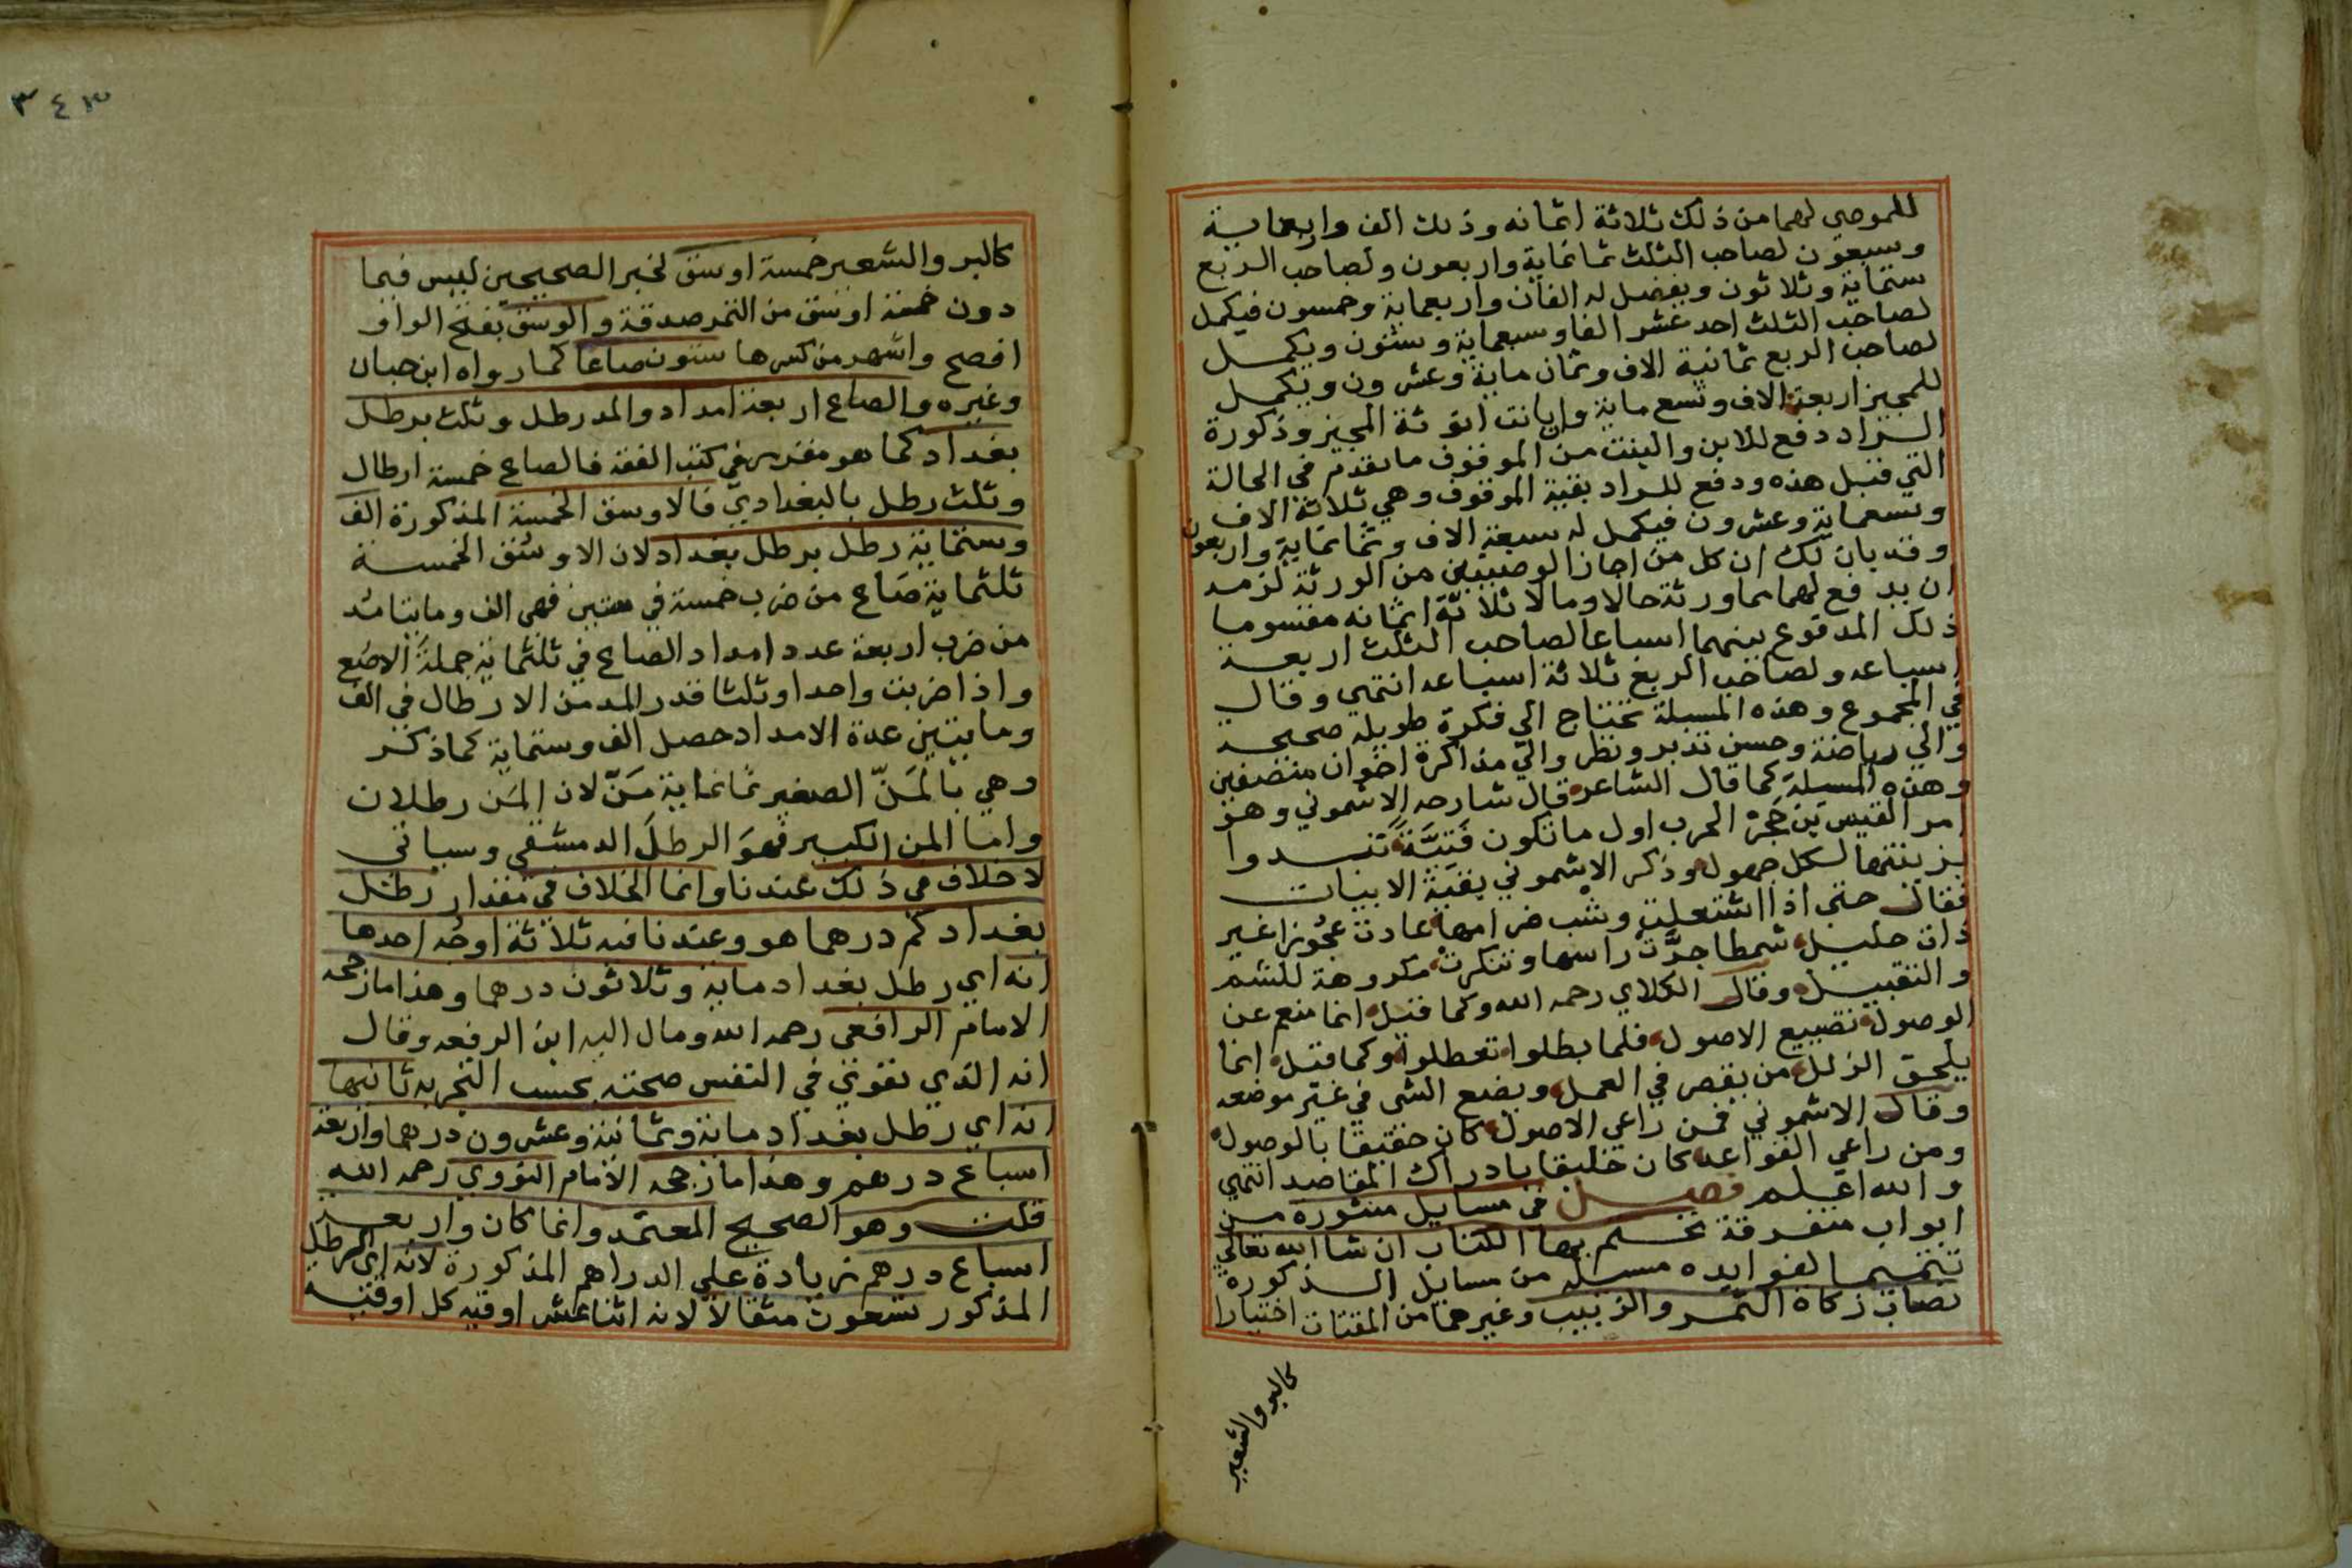 للموصي لهما من ذلك ثلاثة اثمانه وذلك الف واربعماية
وسبعون لصاحب الثلث ثمانماية واربعون ولصاحب الربع
ستماية وثلاثون ويفضل له الفان واربعماية وخمسون فيكمل
لصاحب الثلث احد عشر الفا وسبعماية وستون ويكمل
لصاحب الربع ثمانية الاف وثمان ماية وعشرون ويكمل
للمجيز اربعة الاف وتسع ماية وان بانت انوثة المجيز وذكورة
الراد دفع للابن والبنت من الموقوف ما تقدم في الحالة
التي قبل هذه ودفع للراد بقية الموقوف وهي ثلاثة الاف
وتسعماية وعشرون فيكمل له سبعة الاف وثمانماية واربعون
وقد بان لك ان كل من اجاز الوصيتين من الورثة لزمه
ان يدفع لهما مما ورثه حالا ومالا ثلاثة اثمانه مقسوما
ذلك المدفوع بينهما اسباعا لصاحب الثلث اربعة
اسباعه ولصاحب الربع ثلاثة اسباعه انتهي وقال
في المجموع وهذه المسيلة تحتاج الي فكرة طويلة صحيحة
والي رياضة وحسن تدبر ونظر والي مذاكرة اخوان منصفين
وهذه المسيلة كما قال الشاعر قال شارحه الاشموني وهو
امر القيس بن حجر الحرب اول ما تكون فتية تبدوا
بزينتها لكل جهول وذكر الاشموني بقية الابيات
فقال حتى اذا اشتعلت وشب ضرامها عادت عجوزا غير
ذات حليل شمطا جزت راسها وتنكرت مكروهة للشم
والتقبيل وقال الكلاي رحمه الله وكما قيل انما منعهم عن
الوصول تضييع الاصول فلما بطلوا تعطلوا وكما قيل انما
يلحق الزلل من يقصر في العمل ويضع الشي في غير موضعه
وقال الاشموني فمن راعي الاصول كان حقيقا بالوصول
ومن راعي القواعد كان خليقا بادراك المقاصد انتهي
والله اعلم فصل في مسايل منثورة من
ابواب متفرقة نختم بها الكتاب ان شا الله تعالي
تتميما لفوايده مسيلة من مسايل الذكورة
نصاب زكاة التمر والزبيب وغيرهما من المقتات اختيارا
كالبر والشعير
٣٤٣
كالبر والشعير خمسة اوسق لخبر الصحيحين ليس فيما
دون خمسة اوسق من التمر صدقة والوسق بفتح الواو
افصح واشهر من كسرها ستون صاعا كما رواه ابن حبان
وغيره والصاع اربعة امداد والمد رطل وثلث برطل
بغداد كما هو مقرر في كتب الفقه فالصاع خمسة ارطال
وثلث رطل بالبغدادي فالاوسق الخمسة المذكورة الف
وستماية رطل برطل بغداد لان الاوسق الخمسة
ثلثماية صاع من ضرب خمسة في ستين فهي الف ومايتا مد
من ضرب اربعة عدد امداد الصاع في ثلثماية جملة الاصع
واذا ضربت واحدا وثلثا قدر المد من الارطال في الف
ومايتين عدة الامداد حصل الف وستماية كما ذكر
وهي بالمن الصغير ثمانماية من لان المن رطلان
واما المن الكبير فهو الرطل الدمشقي وسياتي
لا خلاف في ذلك عندنا وانما الخلاف في مقدار رطل
بغداد كم درهما هو وعندنا فيه ثلاثة اوجه احدها
انه اي رطل بغداد ماية وثلاثون درهما وهذا ما رجحه
الامام الرافعي رحمه الله ومال اليه ابن الرفعه وقال
انه الذي تقوي في النفس صحته بحسب التجربه ثانيها
انه اي رطل بغداد ماية وثمانية وعشرون درهما واربعة
اسباع درهم وهذا ما رجحه الامام النووي رحمه الله
قلت وهو الصحيح المعتمد وانما كان واربعة
اسباع درهم زيادة علي الدراهم المذكورة لانه اي الرطل
المذكور تسعون مثقالا لانه اثنا عشر اوقيه كل اوقيه